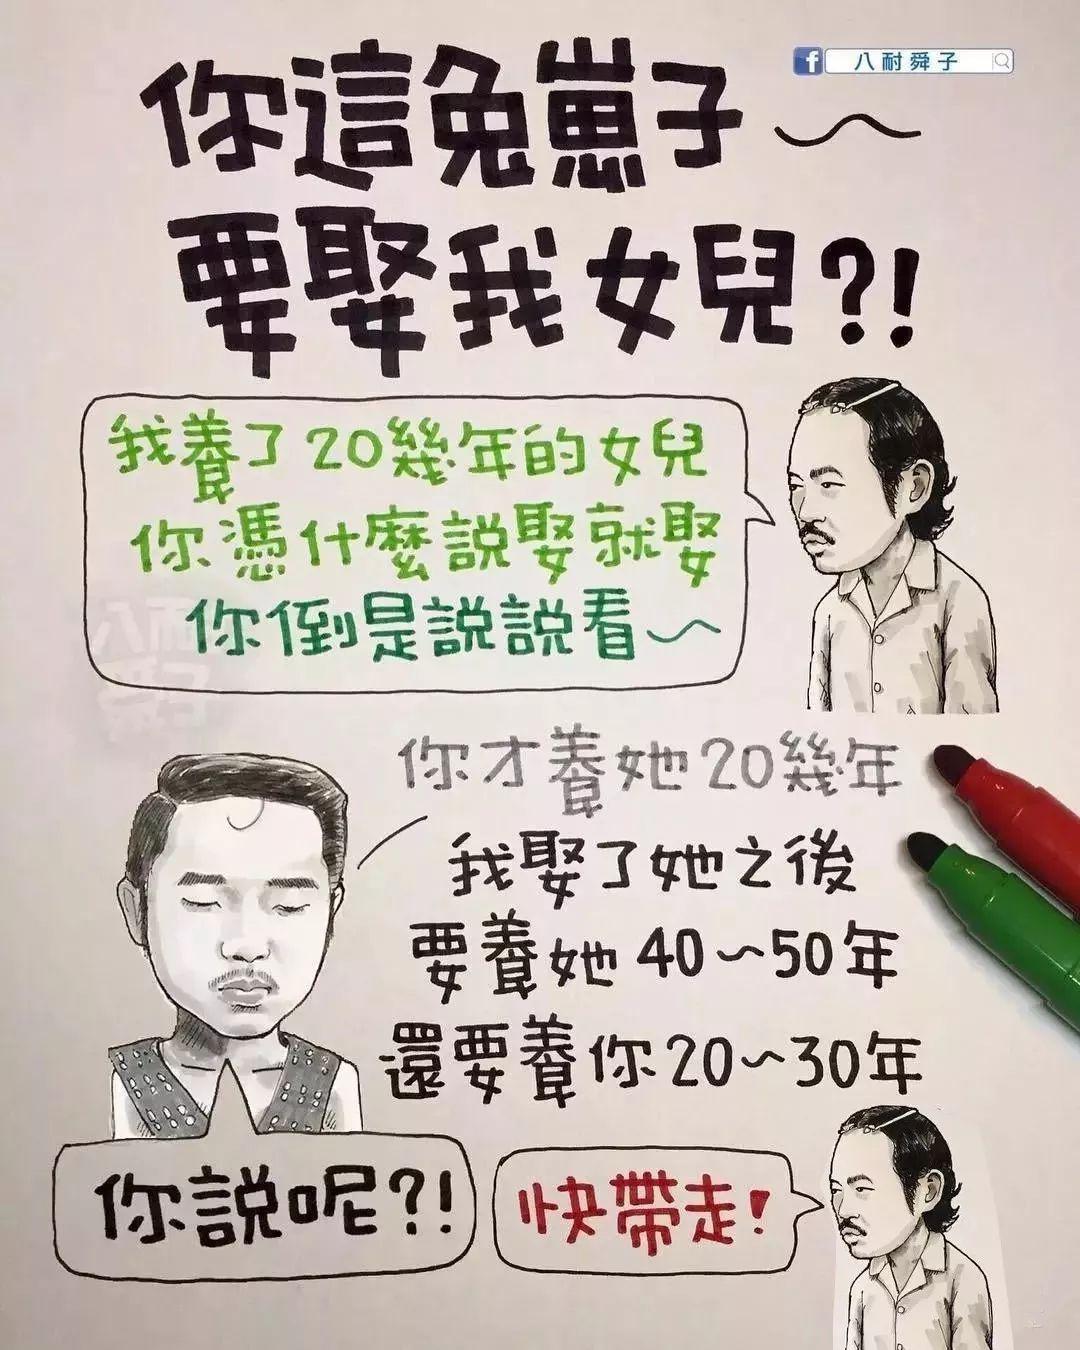 八耐舜子
你這兔崽子~
要娶我女兒?!
我養了20幾年的女兒
你憑什麼說娶就娶
你倒是說說看~
你才養她20幾年
我娶了她之後
要養她40~50年
還要養你20~30年
你說呢?!
快帶走!
八耐
舜子